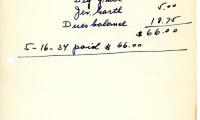 Jen. Garth 5.00
Dues balance 18.75
$66.00
5-16-34 paid $66.00